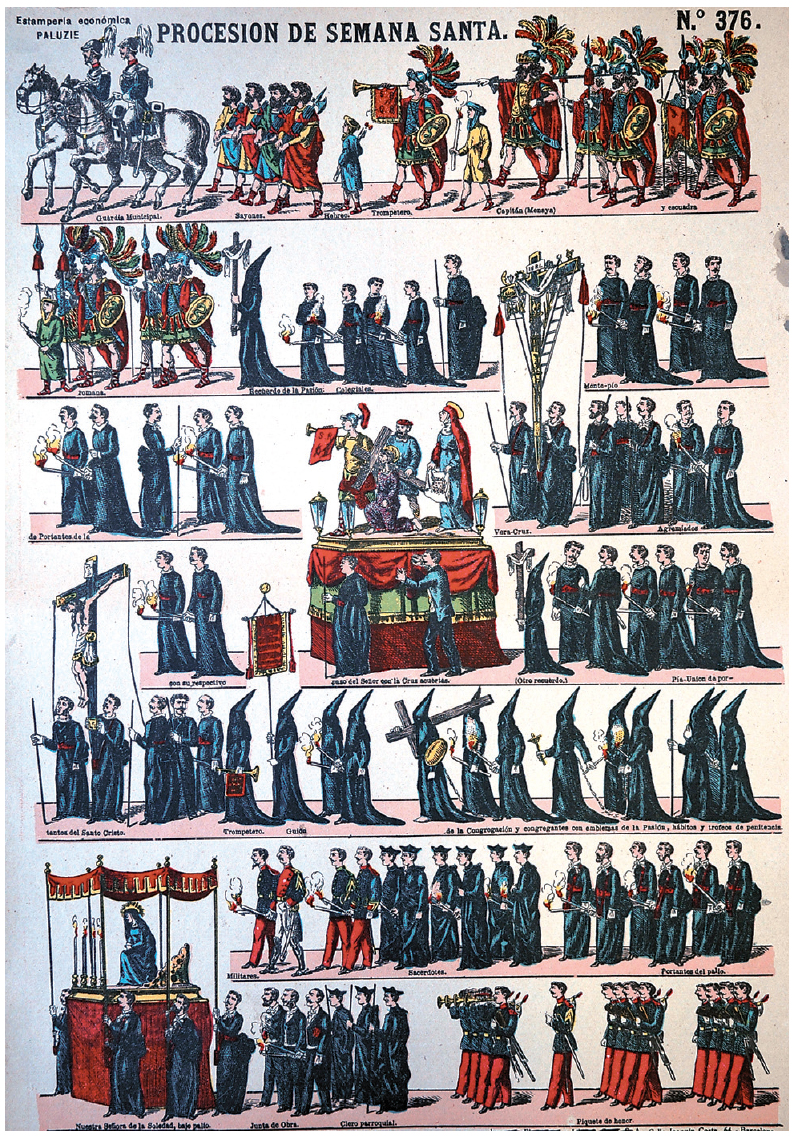 Estamperia económica
PALUZIE
PROCESION DE SEMANA SANTA.
N.º 376.
Guardia Municipal.
Sayones.
Hebreo.
Trompetero.
Capitán (Manaya)
y escuadra
romana.
Recuerdo de la Pasión.
Colegiales.
Monte-pío
de Portantes de la
Vera-Cruz.
Agremiados
con su respectivo
paso del Señor con la Cruz acuestas.
(Otro recuerdo.)
Pía-Unión de por-
tantes del Santo Cristo.
Trompetero.
Guión
de la Congregación y congregantes con emblemas de la Pasión, hábitos y trofeos de penitencia.
Militares.
Sacerdotes.
Portantes del palio.
Nuestra Señora de la Soledad, bajo palio.
Junta de Obra.
Clero parroquial.
Piquete de honor.